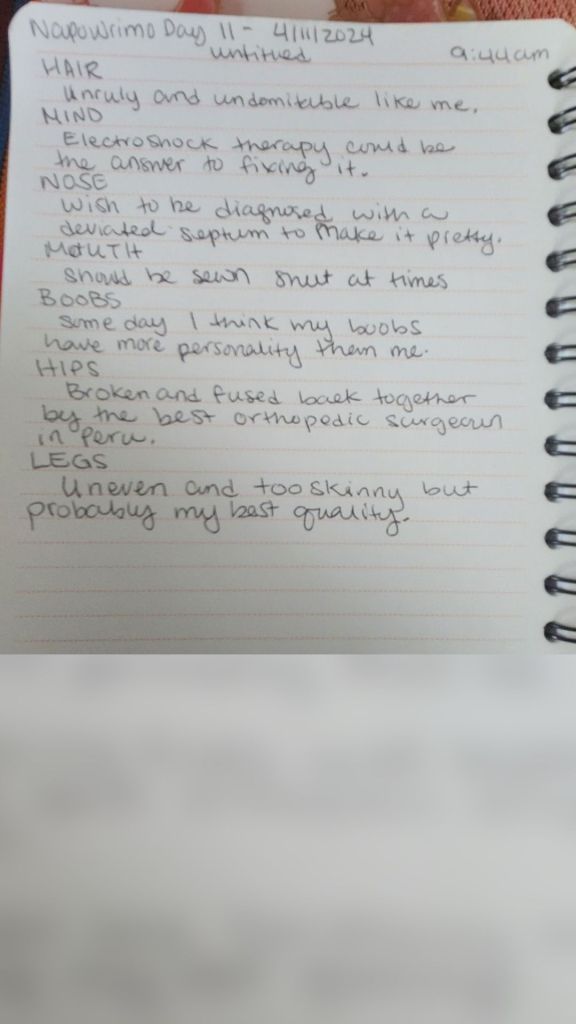 Napowrimo Day 11 - 4/11/2024
untitled 9:44am
HAIR
Unruly and undomitable like me.
MIND
Electroshock therapy could be
the answer to fixing it.
NOSE
Wish to be diagnosed with a
deviated septum to make it pretty.
MOUTH
Should be sewn shut at times
BOOBS
Some day I think my boobs
have more personality them me.
HIPS
Broken and fused back together
by the best orthopedic surgeoun
in Peru.
LEGS
Uneven and too skinny but
probably my best quality.